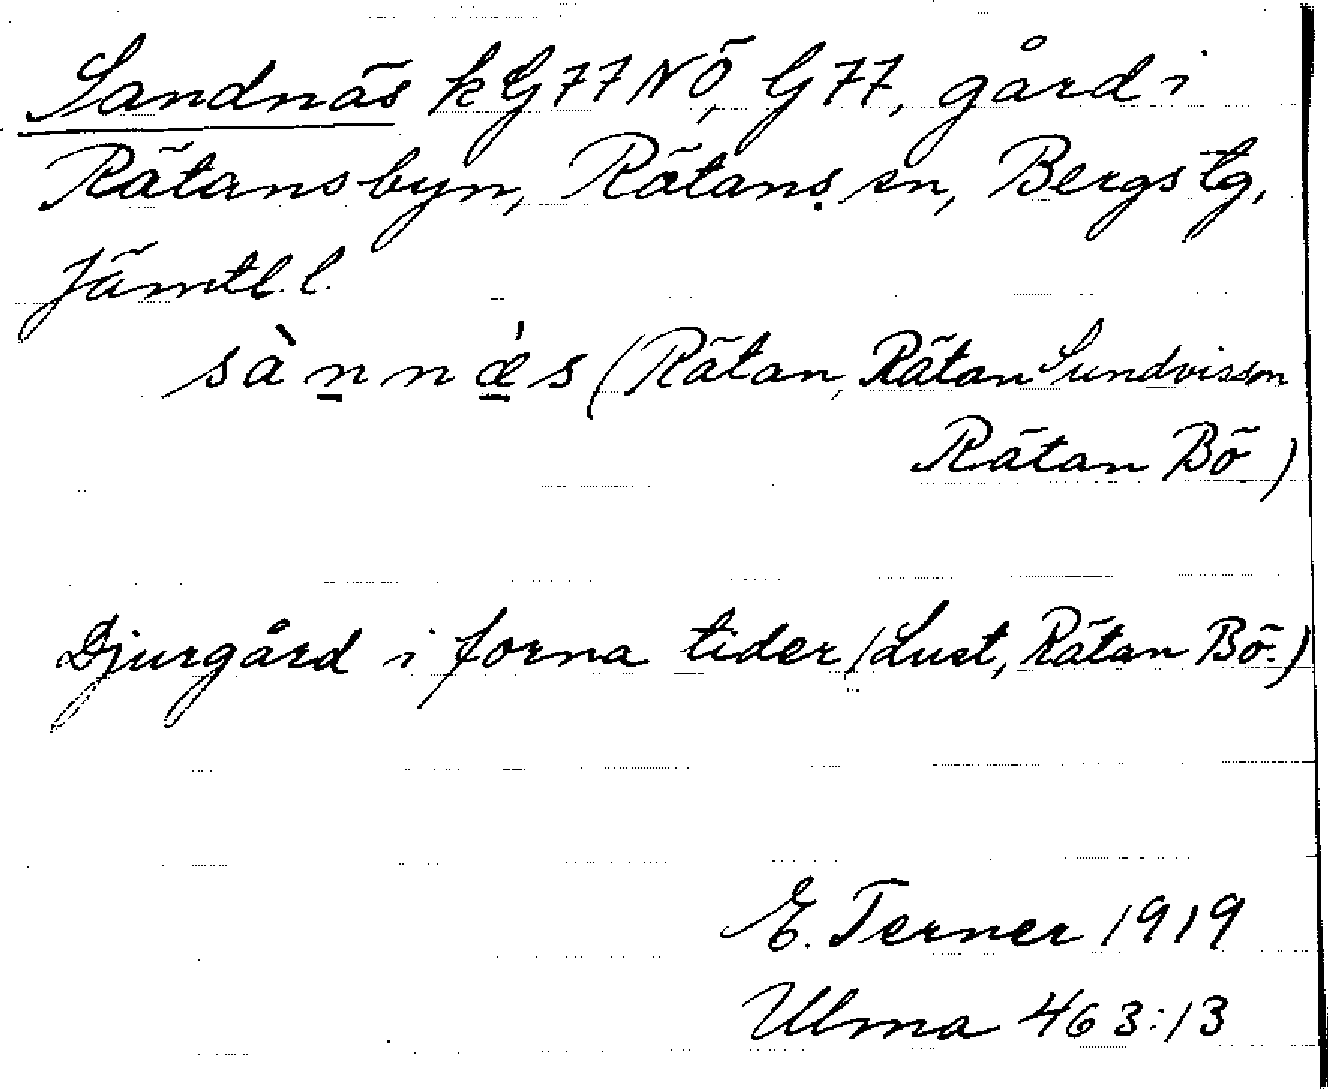 Sandnäs kG77NÖ, G77, gård i
Rätansbyn, Rätans sn, Bergs tg,
Jämtl. l.
sànnǽs (Rätan, Rätan Sundvisson
Rätan Bö)
Djurgård i forna tider (Lust, Rätan Bö.)
E. Terner 1919
Ulma 463:13